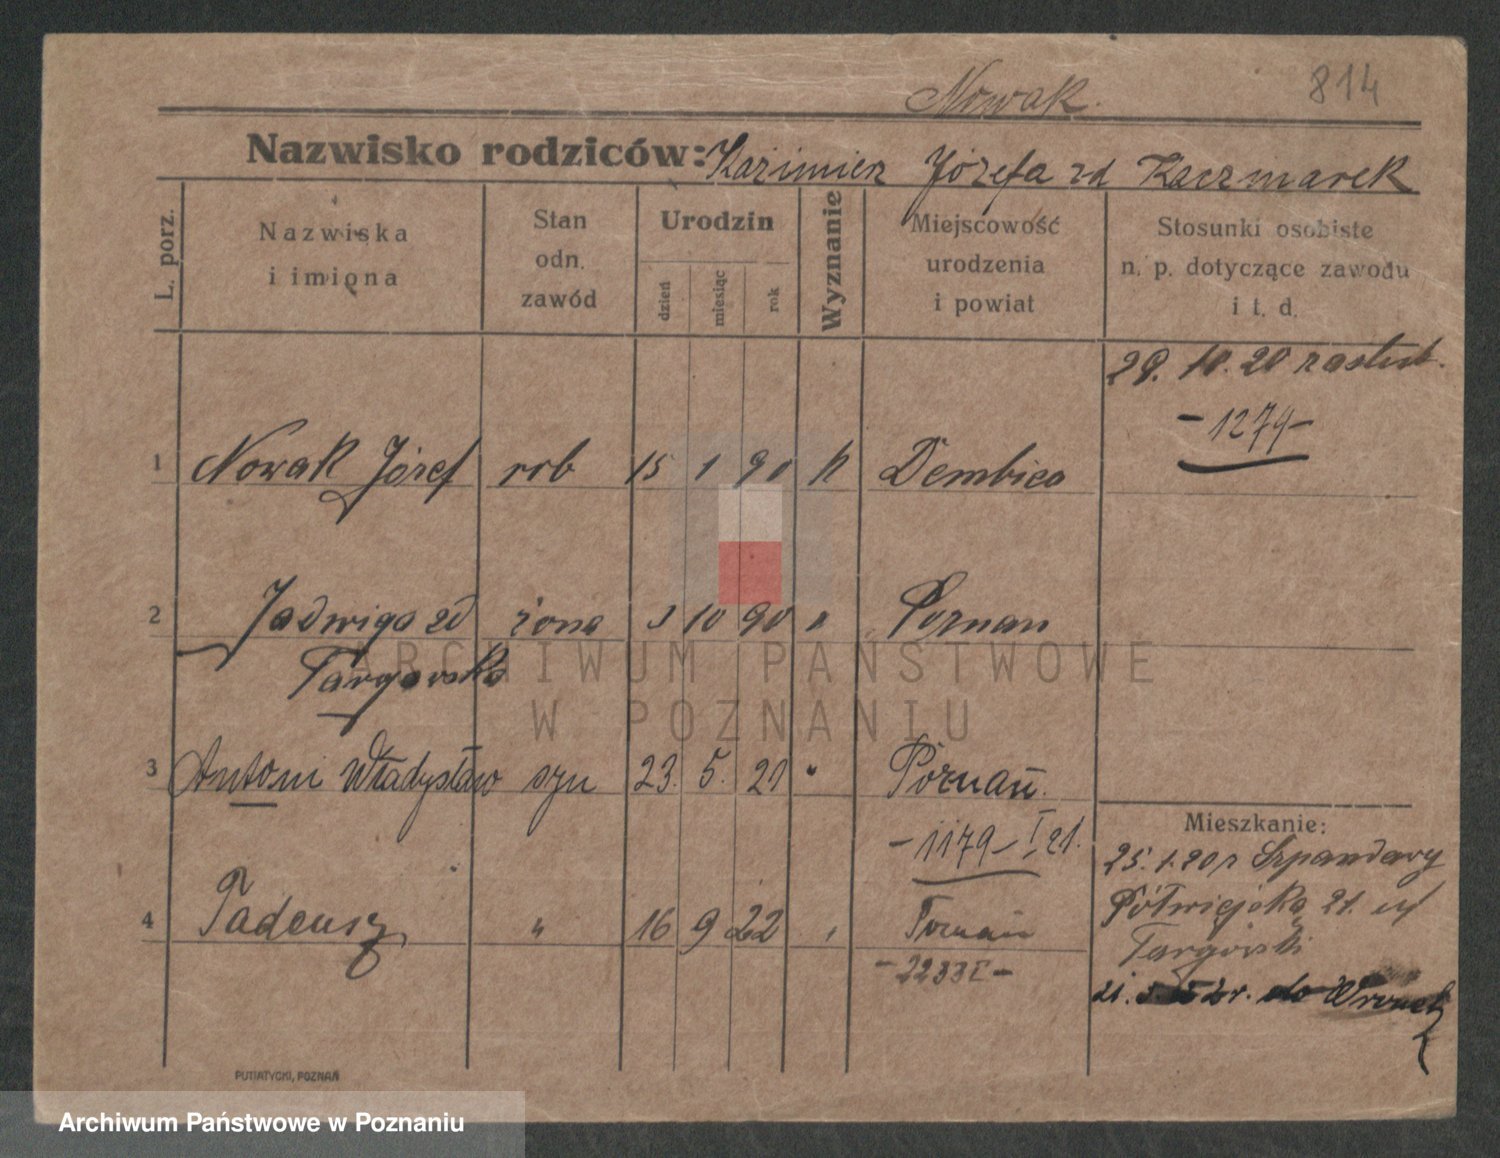 Nowak.
814
Nazwisko rodziców: Kazimierz Józefa zd Kaczmarek
L. porz.
Nazwiska
i imiona
Stan
odn.
zawód
Urodzin
dzień
miesiąc
rok
Wyznanie
Miejscowość
urodzenia
i powiat
Stosunki osobiste
n. p. dotyczące zawodu
i t. d.
29. 10. 20
-1279-
1 Nowak Józef rob 15 1 90 k Dembiec
2 Jadwiga zd żona 3 10 90 " Poznan
Targorska
3 Antoni Władysław syn 23. 5. 21 " Poznań.
-1179- I 21.
4 Tadeusz " 16 9 22 " Poznań
-2233 I-
Mieszkanie:
25.1.20 r Szpandawy
Półwiejska 21. u/
Targórski
21. do Wronek
PUTIATYCKI, POZNAŃ
ARCHIWUM PAŃSTWOWE
W POZNANIU
Archiwum Państwowe w Poznaniu